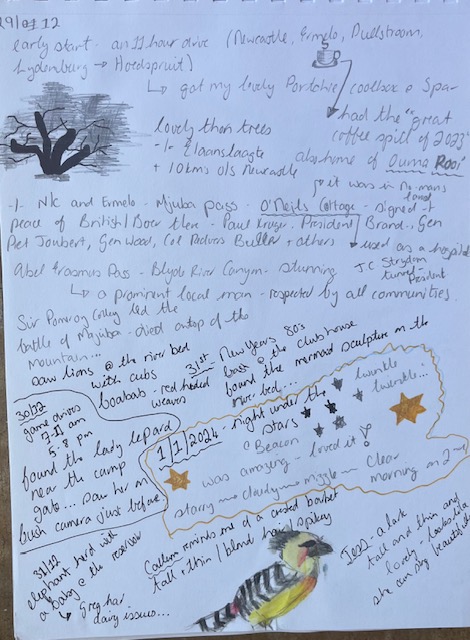 29/12
early start - an 11 hour drive (Newcastle, Ermelo, Dullstroom,
Lydenburg → Hoedspruit)
↳ got my lovely Portchie coolbox @ Spar
had the "great
coffee spill of 2023"
lovely thorn trees
-/- Elaanslaagte
+ 10kms o/s Newcastle
also home of Ouma Rooi
it was in no-mans
land
-/- N/c and Ermelo - Mjuba pass - O'Neils Cottage - signed
peace of British/Boer there - Paul Kruger, President Brand, Gen
Piet Joubert, Gen Wood, Col Redvers Buller + others
used as a hospital
Abel Erasmus Pass - Blyde River Canyon - stunning
JC Strydom
tunnel -
↳ a prominent local man - respected by all communities.
Sir Pomroy Colley led the
battle of Majuba - died ontop of the
mountain...
saw lions @ the river bed
with cubs
boababs - red headed
weavers
31st - New Years 80's
bash @ the clubhouse
found the mermaid sculpture on the
river bed...
30/12
game drives
5-8 pm
found the lady lepard
near the camp
gate... saw her on
bush camera just before
1/1/2024 - night under the
stars
@ Beacon
twinkle
twinkle...
was amazing - loved it!
starry — cloudy — mizzle — Clear
morning on 2nd
31/12
elephant herd with
a baby @ the reservoir
↳ Greg has
dairy issues...
Callum reminds me of a crested barbet
tall + thin / blond hair / spikey
Jess - a lark
tall and thin and
lovely looks like
she can sing beautifully